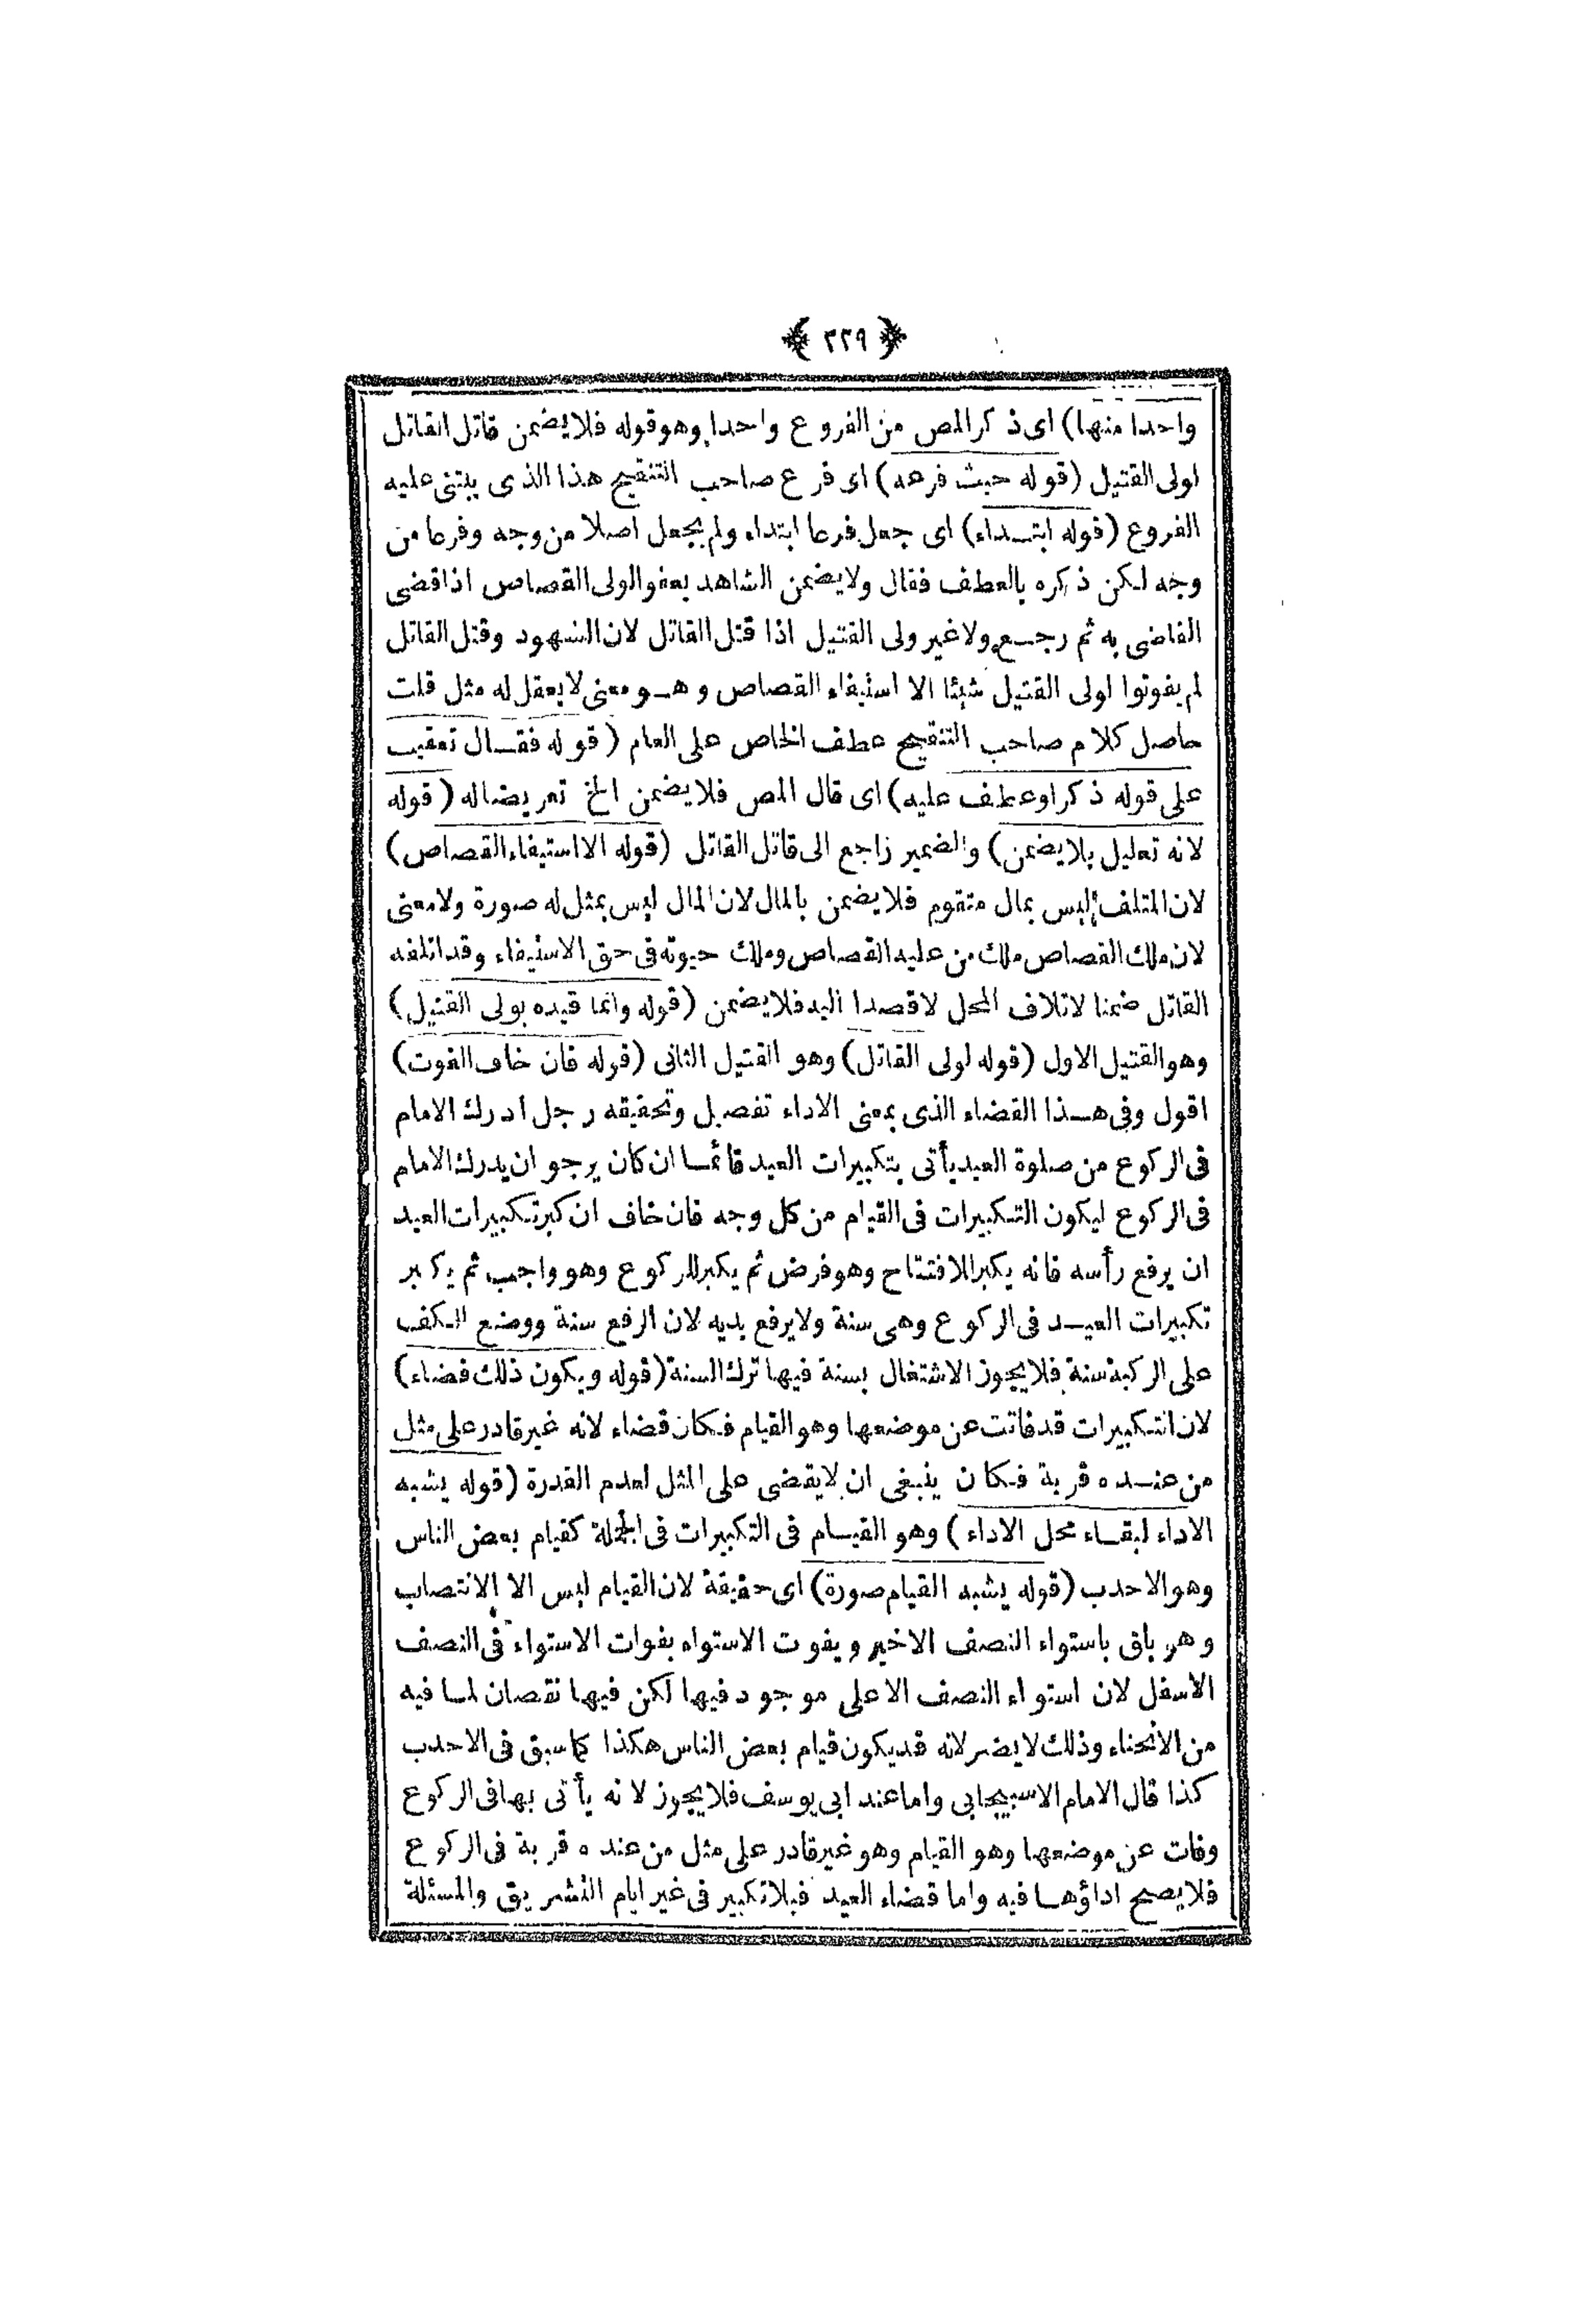 ﴿ ٢٢٩ ﴾
واحدا منها) اى ذكر المص من الفروع واحدا وهو قوله فلا يضمن قاتل القاتل
لولى القتيل (قوله حيث فرعه) اى فرع صاحب التنقيح هذا الذى يبتنى عليه
الفروع (قوله ابتداء) اى جعل فرعا ابتداء ولم يجعل اصلا من وجه وفرعا من
وجه لكن ذكره بالعطف فقال ولا يضمن الشاهد بعفو الولى القصاص اذا قضى
القاضى به ثم رجع ولا غير ولى القتيل اذا قتل القاتل لان الشهود وقتل القاتل
لم يفوتوا لولى القتيل شيئا الا استيفاء القصاص وهو معنى لا يعقل له مثل قلت
حاصل كلام صاحب التنقيح عطف الخاص على العام (قوله فقال تعقيب
على قوله ذكر او عطف عليه) اى قال المص فلا يضمن الخ تعريضا له (قوله
لانه تعليل بلا يضمن) والضمير راجع الى قاتل القاتل (قوله الا استيفاء القصاص)
لان المتلف ليس بمال متقوم فلا يضمن بالمال لان المال ليس بمثل له صورة ولا معنى
لان ملك القصاص ملك من عليه القصاص وملك حيوته فى حق الاستيفاء وقد اتلفه
القاتل ضمنا لاتلاف المحل لا قصدا اليه فلا يضمن (قوله وانما قيده بولى القتيل)
وهو القتيل الاول (قوله لولى القاتل) وهو القتيل الثانى (قوله فان خاف الفوت)
اقول وفى هذا القضاء الذى بمعنى الاداء تفصيل وتحقيقه رجل ادرك الامام
فى الركوع من صلوة العيد يأتى بتكبيرات العيد قائما ان كان يرجو ان يدرك الامام
فى الركوع ليكون التكبيرات فى القيام من كل وجه فان خاف ان كبر تكبيرات العيد
ان يرفع رأسه فانه يكبر للافتتاح وهو فرض ثم يكبر للركوع وهو واجب ثم يكبر
تكبيرات العيد فى الركوع وهى سنة ولا يرفع يديه لان الرفع سنة ووضع الكف
على الركبة سنة فلا يجوز الاشتغال بسنة فيها ترك السنة (قوله ويكون ذلك قضاء)
لان التكبيرات قد فاتت عن موضعها وهو القيام فكان قضاء لانه غير قادر على مثل
من عنده قربة فكان ينبغى ان لا يقضى على المثل لعدم القدرة (قوله يشبه
الاداء لبقاء محل الاداء) وهو القيام فى التكبيرات فى الجملة كقيام بعض الناس
وهو الاحدب (قوله يشبه القيام صورة) اى حقيقة لان القيام ليس الا الانتصاب
وهو باق باستواء النصف الاخير ويفوت الاستواء بفوات الاستواء فى النصف
الاسفل لان استواء النصف الاعلى موجود فيها لكن فيها نقصان لما فيه
من الانحناء وذلك لا يضر لانه قد يكون قيام بعض الناس هكذا كما سبق فى الاحدب
كذا قال الامام الاسبيجابى واما عند ابى يوسف فلا يجوز لانه يأتى بها فى الركوع
وفات عن موضعها وهو القيام وهو غير قادر على مثل من عنده قربة فى الركوع
فلا يصح اداؤها فيه واما قضاء العيد فبلا تكبير فى غير ايام التشريق والمسئلة